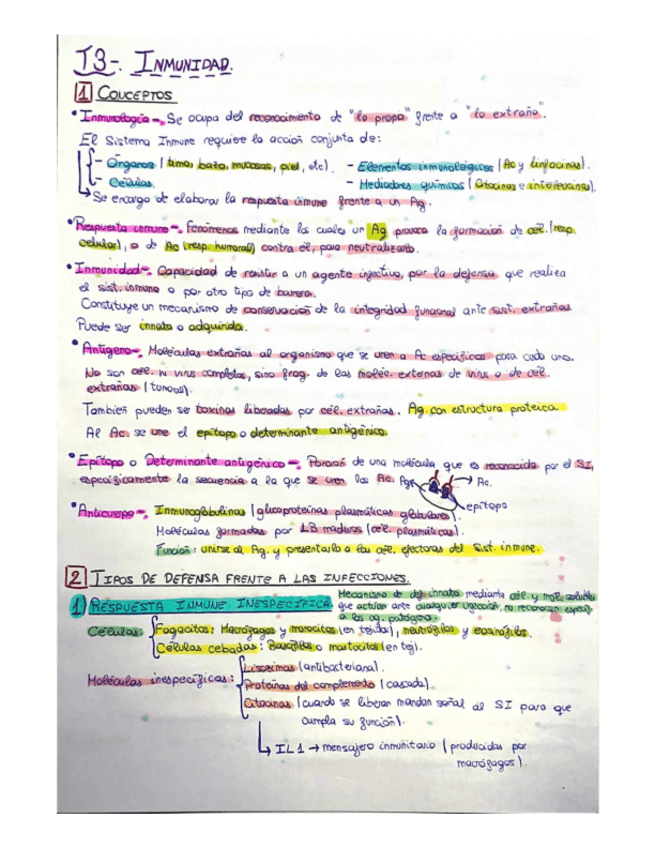 T3-. INMUNIDAD.
1 CONCEPTOS
• Inmunología -. Se ocupa del reconocimiento de "lo propio" frente a "lo extraño".
El Sistema Inmune requiere la acción conjunta de:
- Órganos (timo, bazo, mucosas, piel, etc). - Elementos inmunológicos (Ac y linfocinas).
- Células. - Mediadores químicos (Citocinas e interleucinas).
Se encarga de elaborar la respuesta inmune frente a un Ag.
• Respuesta inmune -. Fenómenos mediante los cuales un Ag provoca la formación de cél. (resp.
celular), o de Ac (resp. humoral) contra él, para neutralizarlo.
• Inmunidad -. Capacidad de resistir a un agente infectivo, por la defensa que realiza
el sist. inmune o por otro tipo de barrera.
Constituye un mecanismo de conservación de la integridad funcional ante sust. extrañas
Puede ser innata o adquirida.
• Antígeno -. Moléculas extrañas al organismo que se unen a Ac específicos para cada uno.
No son cél. ni virus completos, sino frag. de las moléc. externas de virus o de cél.
extrañas (tumores).
También pueden ser toxinas liberadas por cél. extrañas. Ag. con estructura proteica
Al Ac. se une el epítopo o determinante antigénico.
• Epítopo o Determinante antigénico -. Porción de una molécula que es reconocida por el SI,
específicamente la secuencia a la que se unen los Ac. Ag → Ac.
epítopo
• Anticuerpo -. Inmunoglobulinas (glucoproteínas plasmáticas globulares).
Moléculas formadas por LB maduros (cél. plasmáticas).
Función: unirse al Ag. y presentarlo a las cél. efectoras del Sist. inmune.
2 TIPOS DE DEFENSA FRENTE A LAS INFECCIONES.
1) RESPUESTA INMUNE INESPECÍFICA. Mecanismo de def. innata mediante cél. y moléc. solubles
que actúan ante cualquier infección, no reconocen
a los ag. patógenos.
Células: Fagocitos: Macrófagos y monocitos (en tejidos), neutrófilos y eosinófilos.
Células cebadas: Basófilos o mastocitos (en tej).
Moléculas inespecíficas: Lisozimas (antibacteriana).
Proteínas del complemento (cascada).
Citocinas (cuando se liberan mandan señal al SI para que
cumpla su función).
IL1 → mensajero inmunitario (producidas por
macrófagos).